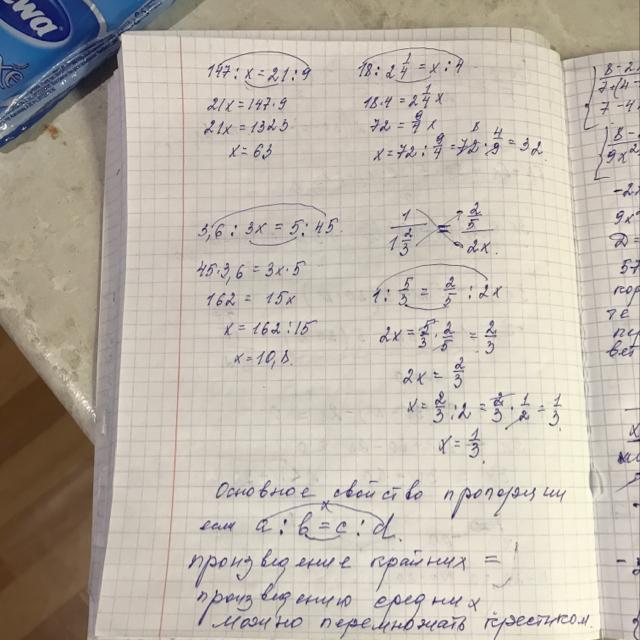 147 : x = 21 : 9
21x = 147·9
21x = 1323
x = 63
18 : 2 1/4 = x : 4
18·4 = 2 1/4 x
72 = 9/4 x
x = 72 : 9/4 = 72 · 4/9 = 32
8
3,6 : 3x = 5 : 45
45·3,6 = 3x·5
162 = 15x
x = 162 : 15
x = 10,8
1 / 1 2/3 = 2/5 / 2x
1 : 5/3 = 2/5 : 2x
2x = 5/3 · 2/5 = 2/3
2x = 2/3
x = 2/3 : 2 = 2/3 · 1/2 = 1/3
x = 1/3
Основное свойство пропорции
x
если a : b = c : d
произведение крайних =
произведению средних
можно перемножать крестиком.
8 - 2
7 - 4
9x²
-2x
9x²
D =
кор
те
вет
x